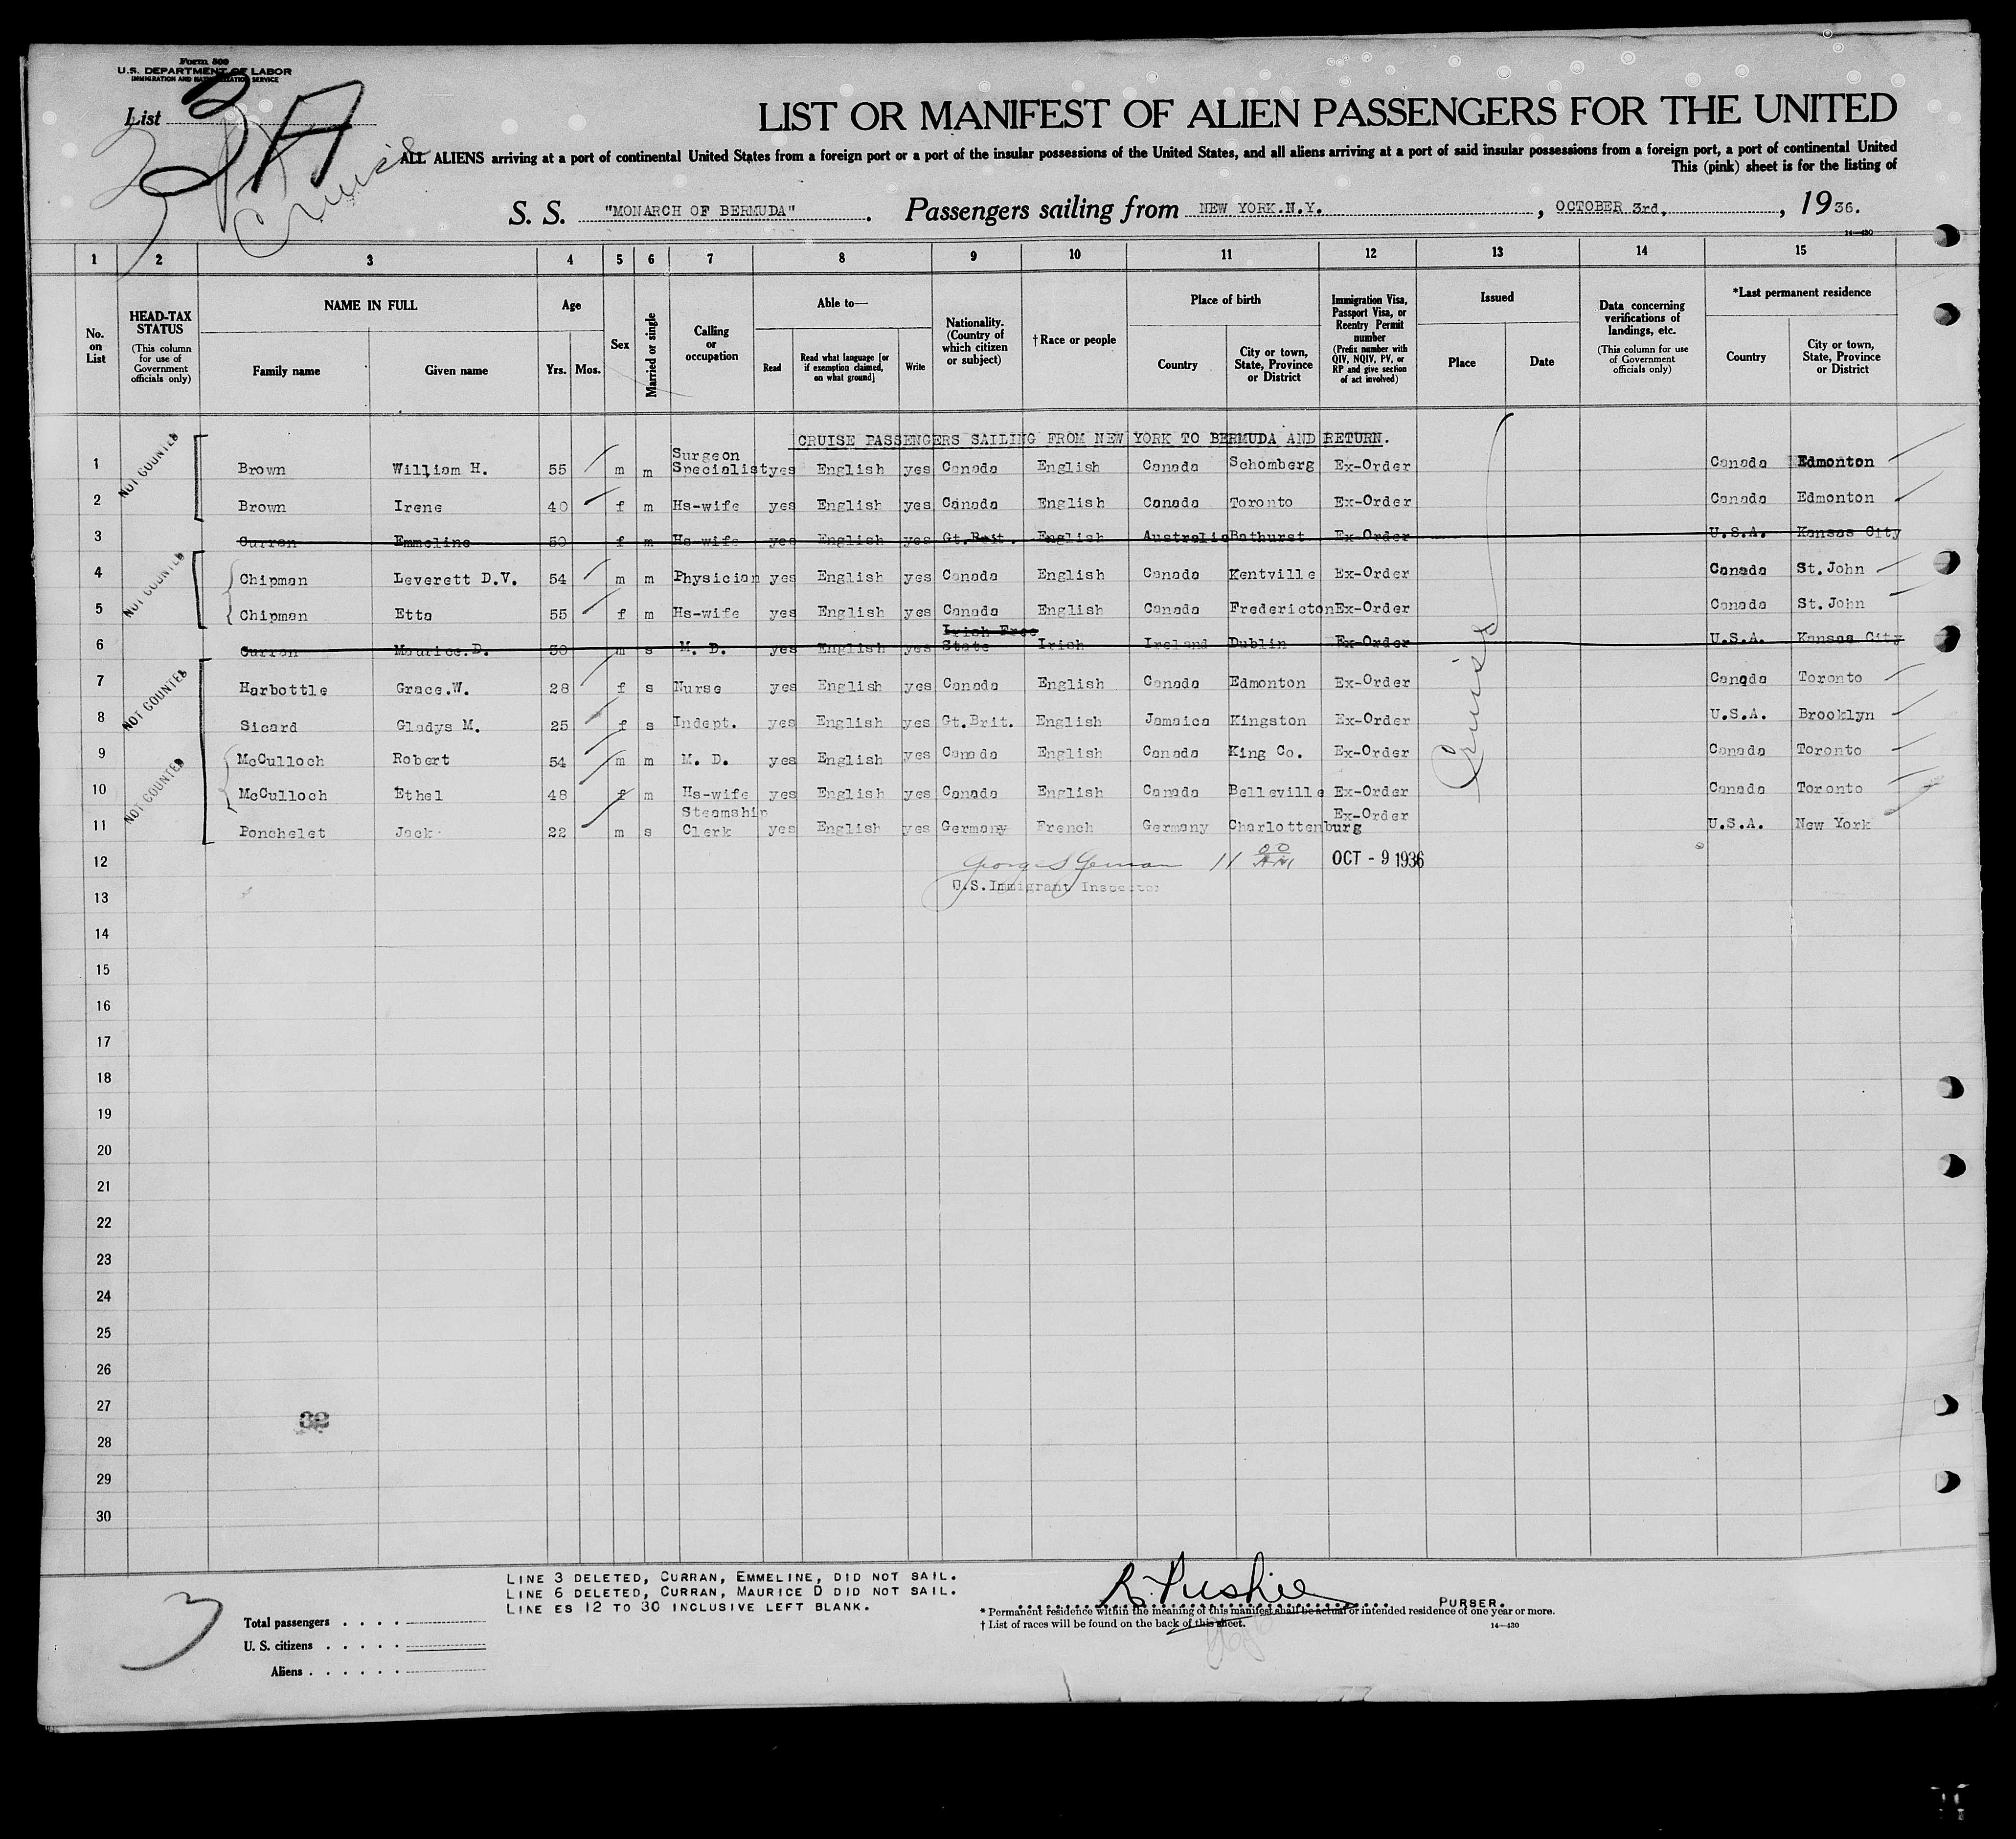 Form 500
U.S. DEPARTMENT OF LABOR
IMMIGRATION AND NATURALIZATION SERVICE
List 3A
3
Cruise
LIST OR MANIFEST OF ALIEN PASSENGERS FOR THE UNITED
ALL ALIENS arriving at a port of continental United States from a foreign port or a port of the insular possessions of the United States, and all aliens arriving at a port of said insular possessions from a foreign port, a port of continental United
This (pink) sheet is for the listing of
S. S. "MONARCH OF BERMUDA". Passengers sailing from NEW YORK.N.Y., OCTOBER 3rd, , 1936.
14—430
1 2 3 4 5 6 7 8 9 10 11 12 13 14 15
No. on List
HEAD-TAX STATUS (This column for use of Government officials only)
NAME IN FULL
Family name Given name
Age
Yrs. Mos.
Sex
Married or single
Calling or occupation
Able to—
Read Read what language [or if exemption claimed, on what ground] Write
Nationality. (Country of which citizen or subject)
† Race or people
Place of birth
Country City or town, State, Province or District
Immigration Visa, Passport Visa, or Reentry Permit number (Prefix number with QIV, NQIV, PV, or RP and give section of act involved)
Issued
Place Date
Data concerning verifications of landings, etc. (This column for use of Government officials only)
*Last permanent residence
Country City or town, State, Province or District
CRUISE PASSENGERS SAILING FROM NEW YORK TO BERMUDA AND RETURN.
NOT COUNTED
1 Brown William H. 55 m m Surgeon Specialist yes English yes Canada English Canada Schomberg Ex-Order Canada Edmonton
2 Brown Irene 40 f m Hs-wife yes English yes Canada English Canada Toronto Ex-Order Canada Edmonton
3 Curran Emmeline 50 f m Hs-wife yes English yes Gt.Brit. English Australia Bathurst Ex-Order U.S.A. Kansas City
NOT COUNTED
4 Chipman Leverett D.V. 54 m m Physician yes English yes Canada English Canada Kentville Ex-Order Canada St.John
5 Chipman Etta 55 f m Hs-wife yes English yes Canada English Canada Fredericton Ex-Order Canada St.John
6 Curran Maurice.D. 50 m s M. D. yes English yes Irish Free State Irish Ireland Dublin Ex-Order U.S.A. Kansas City
NOT COUNTED
7 Harbottle Grace.W. 28 f s Nurse yes English yes Canada English Canada Edmonton Ex-Order Canada Toronto
8 Sicard Gladys M. 25 f s Indept. yes English yes Gt.Brit. English Jamaica Kingston Ex-Order U.S.A. Brooklyn
9 McCulloch Robert 54 m m M. D. yes English yes Canada English Canada King Co. Ex-Order Canada Toronto
NOT COUNTED
10 McCulloch Ethel 48 f m Hs-wife yes English yes Canada English Canada Belleville Ex-Order Canada Toronto
11 Ponchelet Jack 22 m s Steamship Clerk yes English yes Germany French Germany Charlottenburg Ex-Order U.S.A. New York
Cruise
12 11 00 AM OCT - 9 1936
U.S.Immigrant Inspector
13
14
15
16
17
18
19
20
21
22
23
24
25
26
27
28
29
30
3
LINE 3 DELETED, CURRAN, EMMELINE, DID NOT SAIL.
LINE 6 DELETED, CURRAN, MAURICE D DID NOT SAIL.
LINE ES 12 TO 30 INCLUSIVE LEFT BLANK.
Total passengers
U. S. citizens
Aliens
PURSER.
* Permanent residence within the meaning of this manifest shall be actual or intended residence of one year or more.
† List of races will be found on the back of this sheet.
14—430